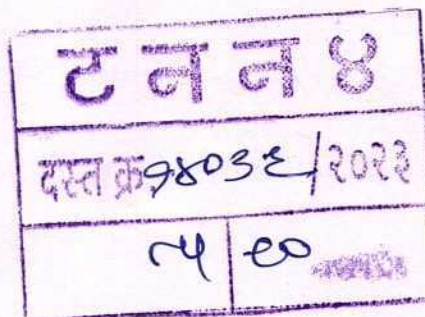 ट न न ४
दस्त क्र. १४०३६/२०२३
५ ९०